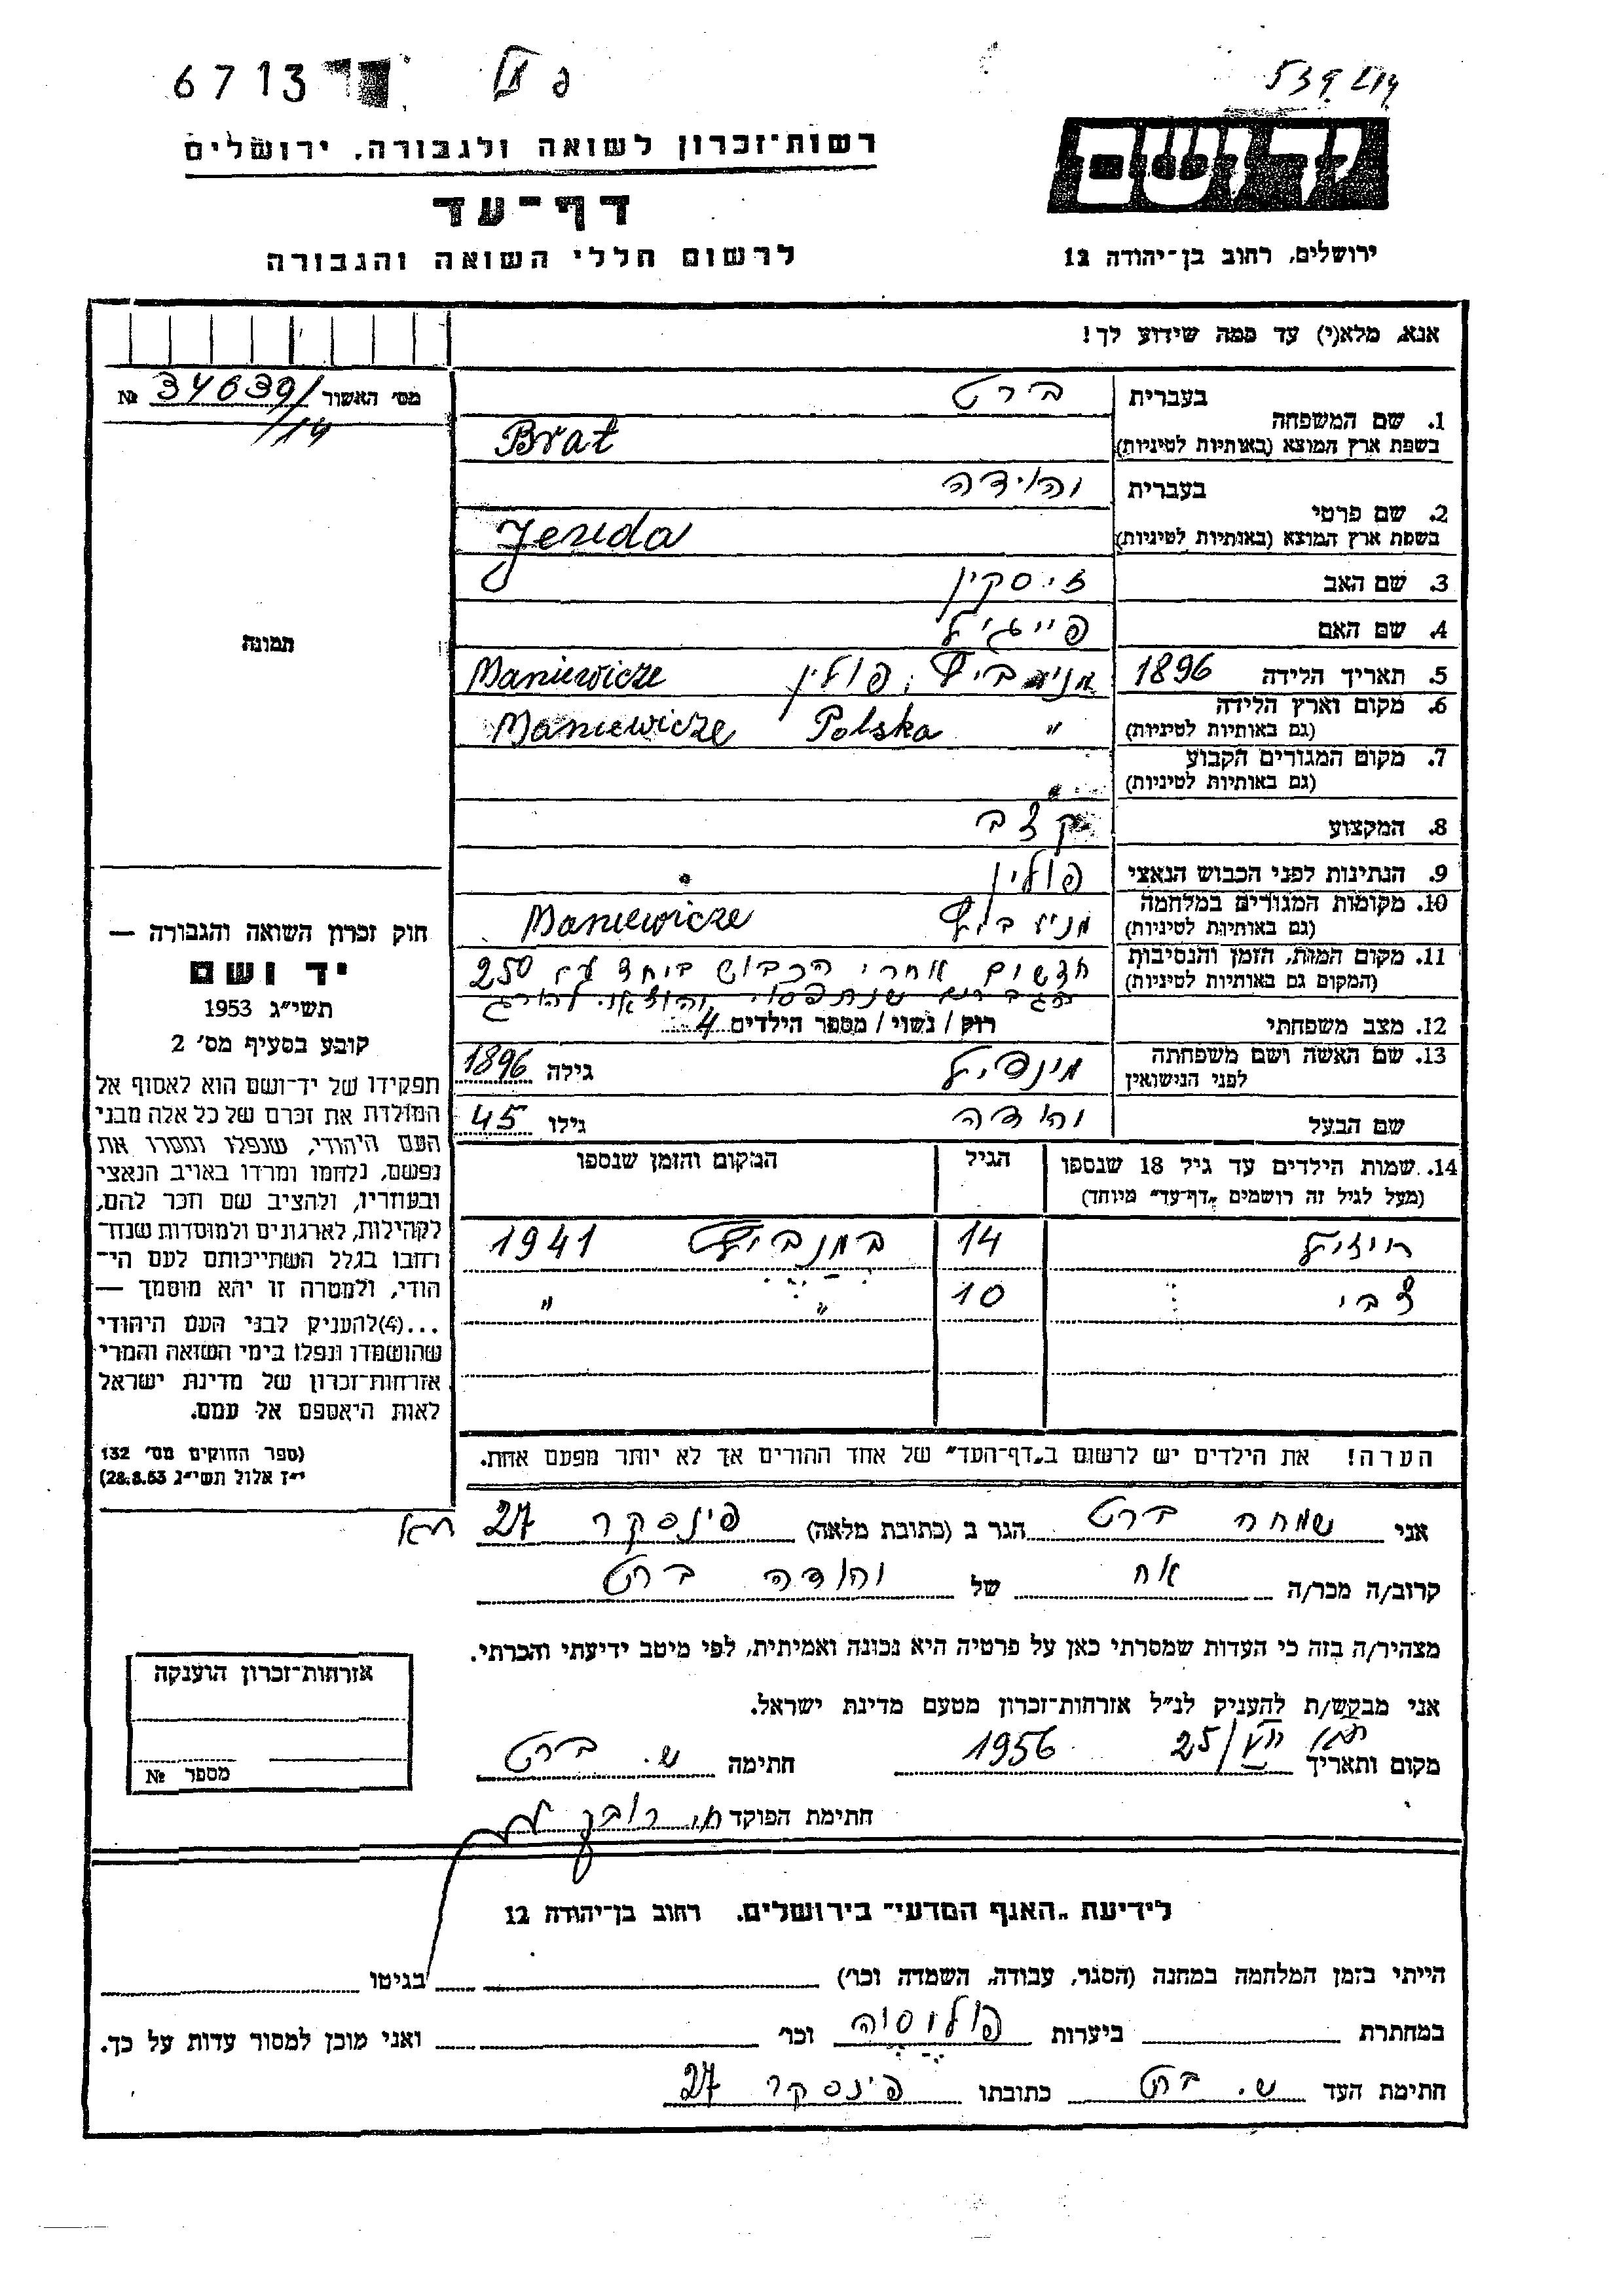 6713
539
רשות־זכרון לשואה ולגבורה, ירושלים
יד ושם
דף־עד
לרשום חללי השואה והגבורה
ירושלים, רחוב בן־יהודה 12
אנא, מלא(י) עד כמה שידוע לך!
מס׳ האשור 34639/14 №
בעברית ברט
1. שם המשפחה
בשפת ארץ המוצא (באותיות לטיניות) Brat
בעברית יהודה
2. שם פרטי
בשפת ארץ המוצא (באותיות לטיניות) Jeruda
3. שם האב זיסקין
4. שם האם פייגיל
5. תאריך הלידה 1896
6. מקום וארץ הלידה פולין Maniewicze
(גם באותיות לטיניות) " Polska Maniewicze
7. מקום המגורים הקבוע
(גם באותיות לטיניות)
8. המקצוע קצב
9. הנתינות לפני הכבוש הנאצי פולין
10. מקומות המגורים במלחמה
(גם באותיות לטיניות) Maniewicze
11. מקום המות, הזמן והנסיבות חדשים אחרי הכבוש ביחד עם 250
(המקום גם באותיות לטיניות) והוציאו להורג
12. מצב משפחתי רוק / נשוי / מספר הילדים 4
13. שם האשה ושם משפחתה מינדיל גילה 1896
לפני הנישואין
שם הבעל יהודה גילו 45
14. שמות הילדים עד גיל 18 שנספו הגיל המקום והזמן שנספו
(מעל לגיל זה רושמים „דף־עד״ מיוחד)
רייזיל 14 1941
צבי 10 " "
הערה! את הילדים יש לרשום ב„דף־העד״ של אחד ההורים אך לא יותר מפעם אחת.
תמונה
חוק זכרון השואה והגבורה —
יד ושם
תשי״ג 1953
קובע בסעיף מס׳ 2
תפקידו של יד־ושם הוא לאסוף אל
המולדת את זכרם של כל אלה מבני
העם היהודי, שנפלו ומסרו את
נפשם, נלחמו ומרדו באויב הנאצי
ובעוזריו, ולהציב שם וזכר להם,
לקהילות, לארגונים ולמוסדות שנח־
רחבו בגלל השתייכותם לעם הי־
הודי, ולמטרה זו יהא מוסמך —
...(4)להעניק לבני העם היהודי
שהושמדו ונפלו בימי השואה והמרי
אזרחות־זכרון של מדינת ישראל
לאות היאספם אל עמם.
(ספר החוקים מס׳ 132
י״ז אלול תשי״ג 28.8.53)
אני שמחה ברט הגר ב (כתובת מלאה) פינסקר 27 ת״א
קרוב/ה מכר/ה אח של יהודה ברט
מצהיר/ה בזה כי העדות שמסרתי כאן על פרטיה היא נכונה ואמיתית, לפי מיטב ידיעתי והכרתי.
אני מבקש/ת להעניק לנ״ל אזרחות־זכרון מטעם מדינת ישראל.
מקום ותאריך ת״א 25/ 1956 חתימה ש. ברט
חתימת הפוקד
אזרחות־זכרון הוענקה
מספר №
לידיעת „האגף המדעי״ בירושלים, רחוב בן־יהודה 12
הייתי בזמן המלחמה במחנה (הסגר, עבודה, השמדה וכו׳) בגיטו
במחתרת ביערות פולוסיה וכו׳ ואני מוכן למסור עדות על כך.
חתימת העד ש. ברט כתובתו פינסקר 27